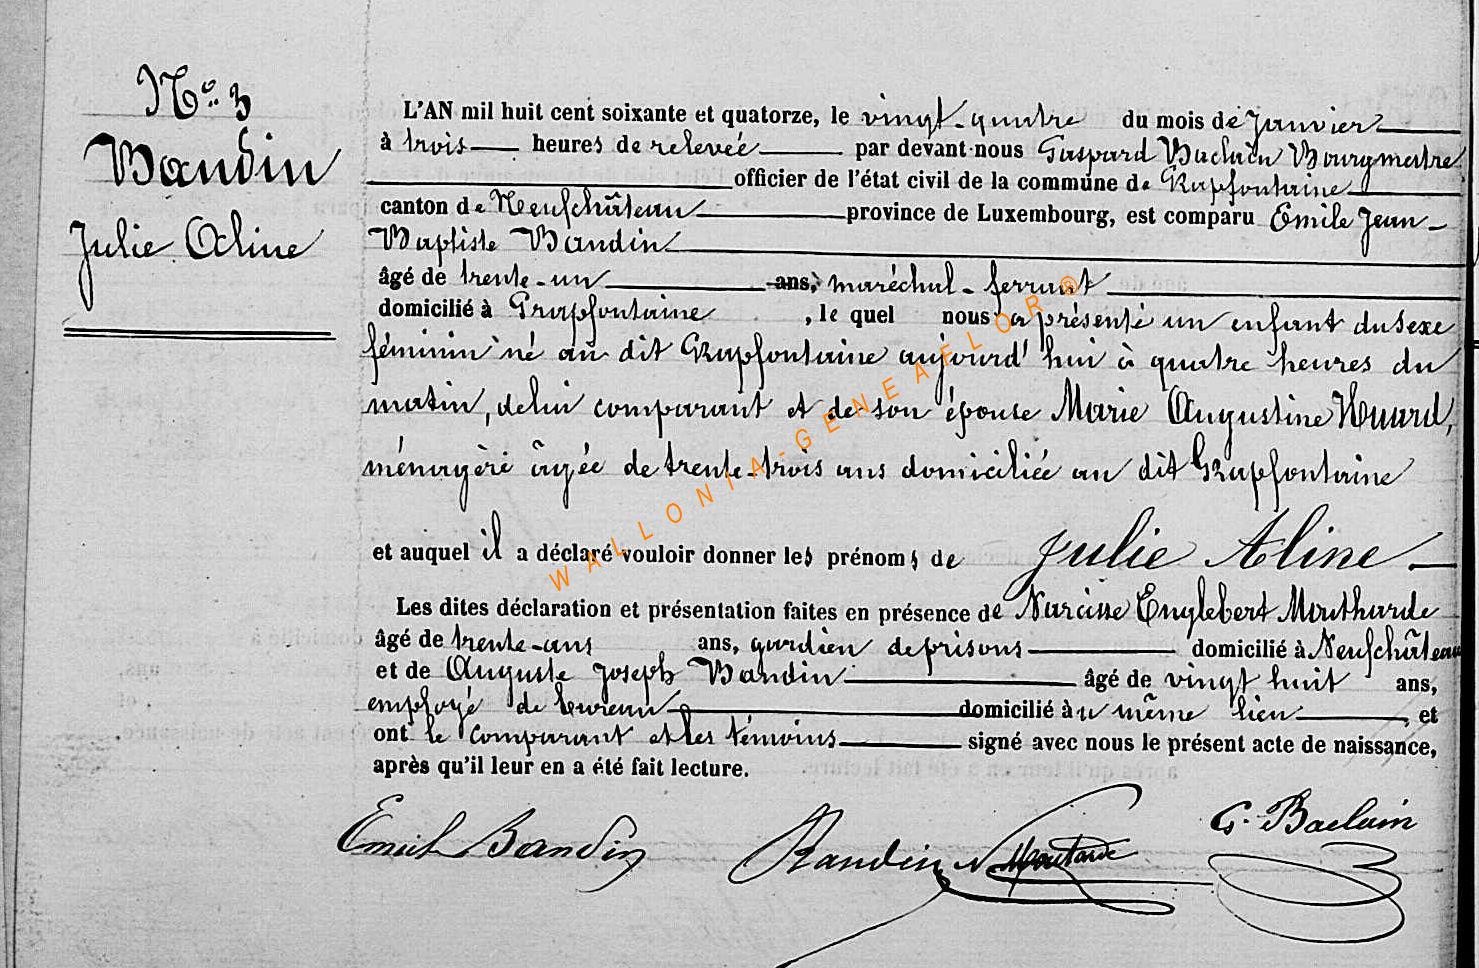 N.º 3
Baudin
Julie Aline
L'AN mil huit cent soixante et quatorze, le vingt-quatre du mois de Janvier
à trois heures de relevée par devant nous Gaspard Baclain Bourgmestre
officier de l'état civil de la commune de Grapfontaine
canton de Neufchâteau province de Luxembourg, est comparu Emile Jean-
Baptiste Baudin
âgé de trente-un ans, maréchal-ferrant
domicilié à Grapfontaine, le quel nous a présenté un enfant du sexe
féminin né au dit Grapfontaine aujourd'hui à quatre heures du
matin, de lui comparant et de son épouse Marie Augustine Huard,
ménagère âgée de trente-trois ans domiciliée au dit Grapfontaine
et auquel il a déclaré vouloir donner les prénoms de Julie Aline
Les dites déclaration et présentation faites en présence de Narcisse Englebert Moutharde
âgé de trente-ans ans, gardien de prisons domicilié à Neufchâteau
et de Auguste Joseph Baudin âgé de vingt huit ans,
employé de bureau domicilié au même lieu, et
ont le comparant et les témoins signé avec nous le présent acte de naissance,
après qu'il leur en a été fait lecture.
Emile Baudin Baudin N Moutarde G. Baclain
WALLONIA-GENEAFLOR ®